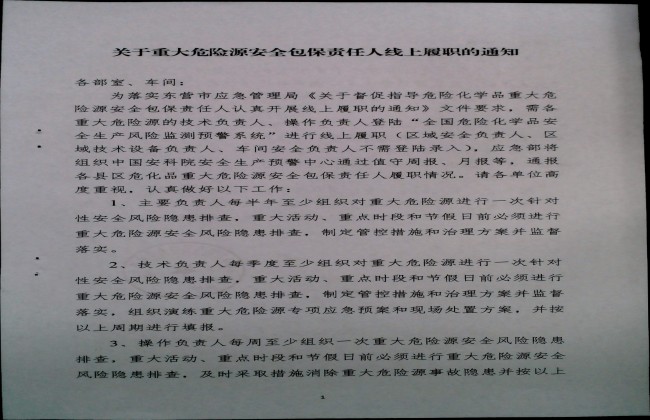 关于重大危险源安全包保责任人线上履职的通知
各部室、车间：
为落实东营市应急管理局《关于督促指导危险化学品重大危
险源安全包保责任人认真开展线上履职的通知》文件要求，需各
重大危险源的技术负责人、操作负责人登陆“全国危险化学品安
全生产风险监测预警系统”进行线上履职（区域安全负责人、区
域技术设备负责人、车间安全负责人不需登陆录入），应急部将
组织中国安科院安全生产预警中心通过值守周报、月报等，通报
各县区危化品重大危险源安全包保责任人履职情况。请各单位高
度重视，认真做好以下工作：
1、主要负责人每半年至少组织对重大危险源进行一次针对
性安全风险隐患排查，重大活动、重点时段和节假日前必须进行
重大危险源安全风险隐患排查，制定管控措施和治理方案并监督
落实。
2、技术负责人每季度至少组织对重大危险源进行一次针对
性安全风险隐患排查，重大活动、重点时段和节假日前必须进行
重大危险源安全风险隐患排查，制定管控措施和治理方案并监督
落实，组织演练重大危险源专项应急预案和现场处置方案，并按
以上周期进行填报。
3、操作负责人每周至少组织一次重大危险源安全风险隐患
排查，重大活动、重点时段和节假日前必须进行重大危险源安全
风险隐患排查，及时采取措施消除重大危险源事故隐患并按以上
1